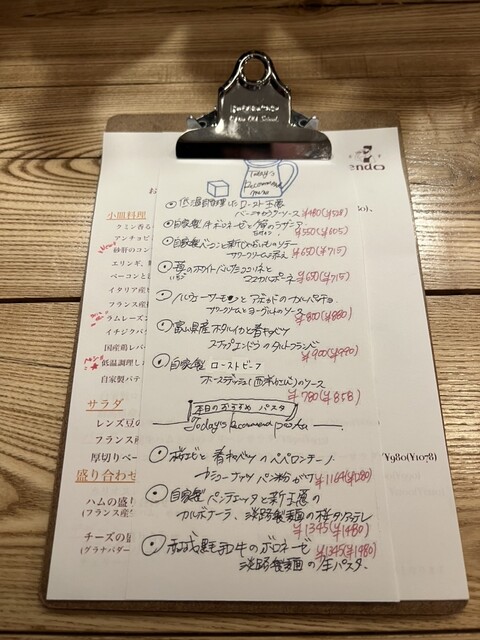 Open Old School
Today's
Recommend
menu
endo
小皿料理
クミン香る
アンチョビ
砂肝のコン
エリンギ、
ベーコンと
イタリア産
フランス産
ラムレーズ
イチジクバ
国産鶏レバ
低温調理し
自家製パテ
サラダ
レンズ豆の
フランス
厚切りベー
盛り合わせ
ハムの盛り
(フランス産
チーズの
(グラナパダー
低温調理したロースト玉葱
バーニャカウダーソース ¥480(¥528)
自家製 牛ボロネーゼと茄のラザニア
¥550(¥605)
自家製ベーコンと新じゃがいものソテー
サワークリーム添え ¥650(¥715)
苺のホワイトバルサミコマリネと
いちご
マスカルポーネ ¥650(¥715)
ノルウェーサーモンとアボカドのカルパッチョ
サワークリームとヨーグルトのソース
¥800(¥880)
富山県産 ホタルイカと春キャベツ
スナップエンドウのタルトフランベ
¥900(¥990)
自家製 ローストビーフ
ホースラディッシュ(西洋わさび)のソース
¥780(¥858)
本日のおすすめ パスタ
Today's Recommend pasta
桜エビと春キャベツのペペロンチーノ
カシューナッツ パン粉がけ
自家製 パンチェッタと新玉葱の
カルボナーラ、淡路製麺の桜タリアテレ
¥1345(¥1480)
赤城黒毛和牛のボロネーゼ ¥1345(¥1480)
淡路製麺の生パスタ
¥980(¥1078)